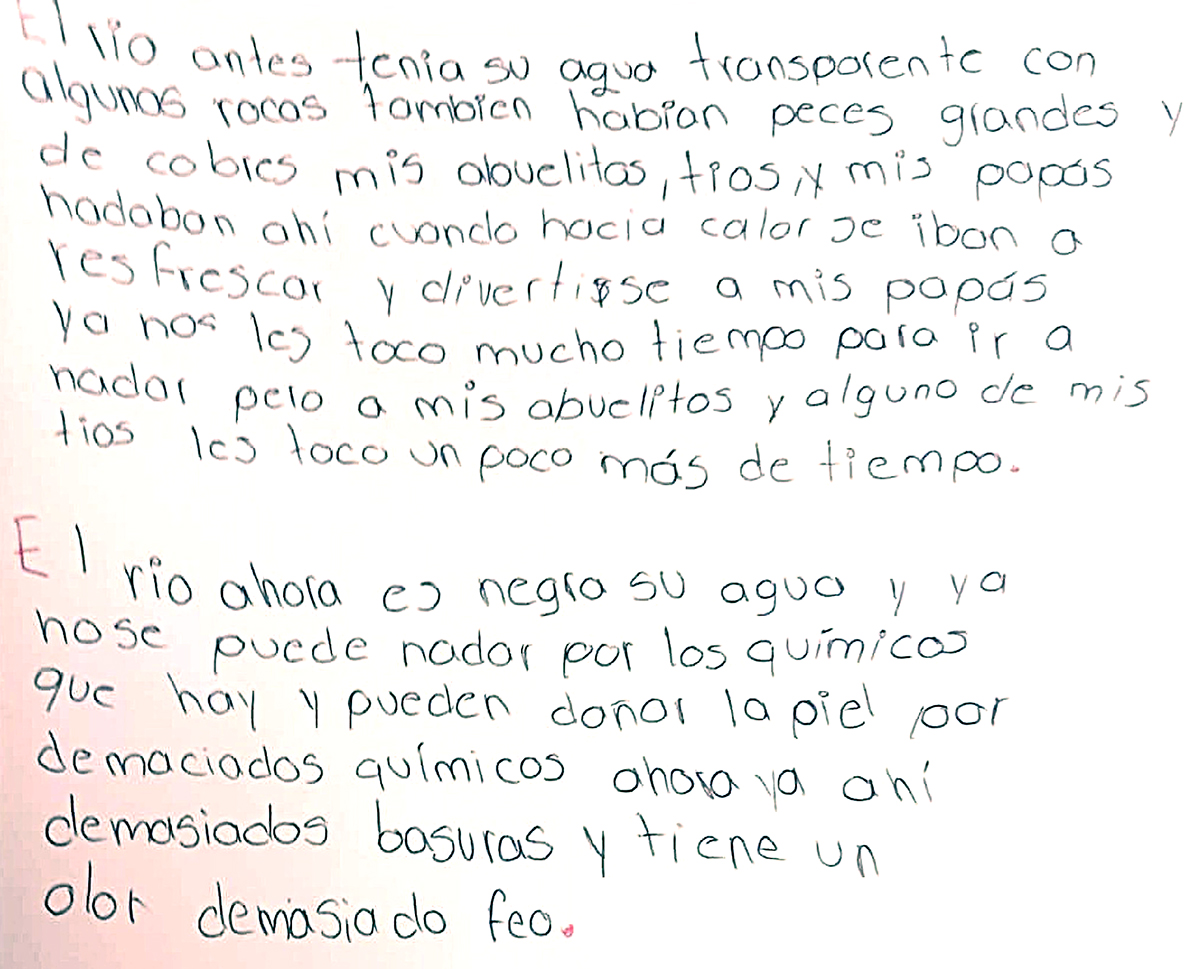 El río antes tenia su agua transparente con
algunas rocas tambien habian peces grandes y
de cobres mis abuelitas, tios, y mis papás
nadaban ahí cuando hacia calor se iban a
resfrescar y divertirse a mis papás
ya nos les toco mucho tiempo para ir a
nadar pero a mis abuelitos y alguno de mis
tios les toco un poco más de tiempo.
El río ahora es negra su agua y ya
no se puede nadar por los químicos
que hay y pueden dañar la piel por
demaciados químicos ahora ya ahí
demasiados basuras y tiene un
olor demasiado feo.